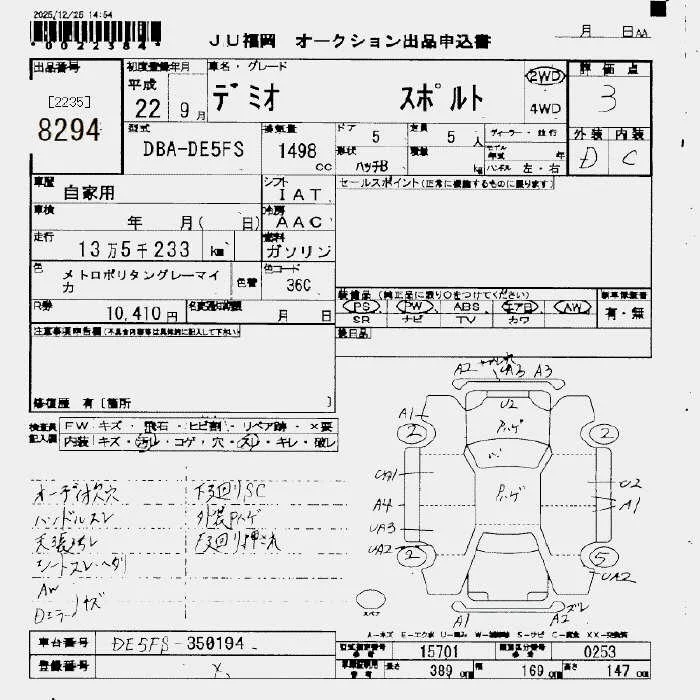 2025/12/25 14:54
*0022384*
JU福岡 オークション出品申込書
月 日AA
出品番号
[2235]
8294
初度登録年月
平成
22 9月
車名・グレード
デミオ スポルト
2WD
4WD
評価点
3
外装 内装
D C
型式
DBA-DE5FS
排気量
1498
cc
ドア 5
定員 5 人
形状 ハッチB
積載 kg
ディーラー・並行
モデル年式 年
ハンドル 左・右
車歴
自家用
シフト
IAT
セールスポイント(正常に機能するものに限ります)
車検
年 月( 日)
冷房
AAC
走行
13万5千233 km
燃料
ガソリン
色
メトロポリタングレーマイカ
色替
色コード
36C
装備品 (純正品に限り○をつけてください)
PS PW ABS エアB AW
SR ナビ TV カワ
新車保証書
有・無
R券
10,410円
名変運行期限
月 日
後日品
注意事項申告欄(不具合内容等は具体的に記入して下さい)
修復歴 有 [箇所 ]
検査員記入欄
FW キズ・飛石・ヒビ割・リペア跡・×要
内装 キズ・汚レ・コゲ・穴・スレ・キレ・破レ
オーディオ欠穴
ハンドルスレ
天張汚レ
シートスレ・ヘタリ
AW
Dミラー キズ
下回りSC
外装Pハゲ
下回り押され
A2 UA3 A3
U2
Pハゲ
A1
2
2
UA1
Pハゲ
U2
A4
A1
UA3
UA2
2
5
UA2
スペア
A1
A2 ズレ
A…キズ E…エクボ U…凹み W…補修跡 S…サビ C…腐食 XX…交換済
車台番号
DE5FS-350194
登録番号
型式指定番号
15701
類別区分番号
0253
長さ 389 cm 幅 169 cm 高さ 147 cm